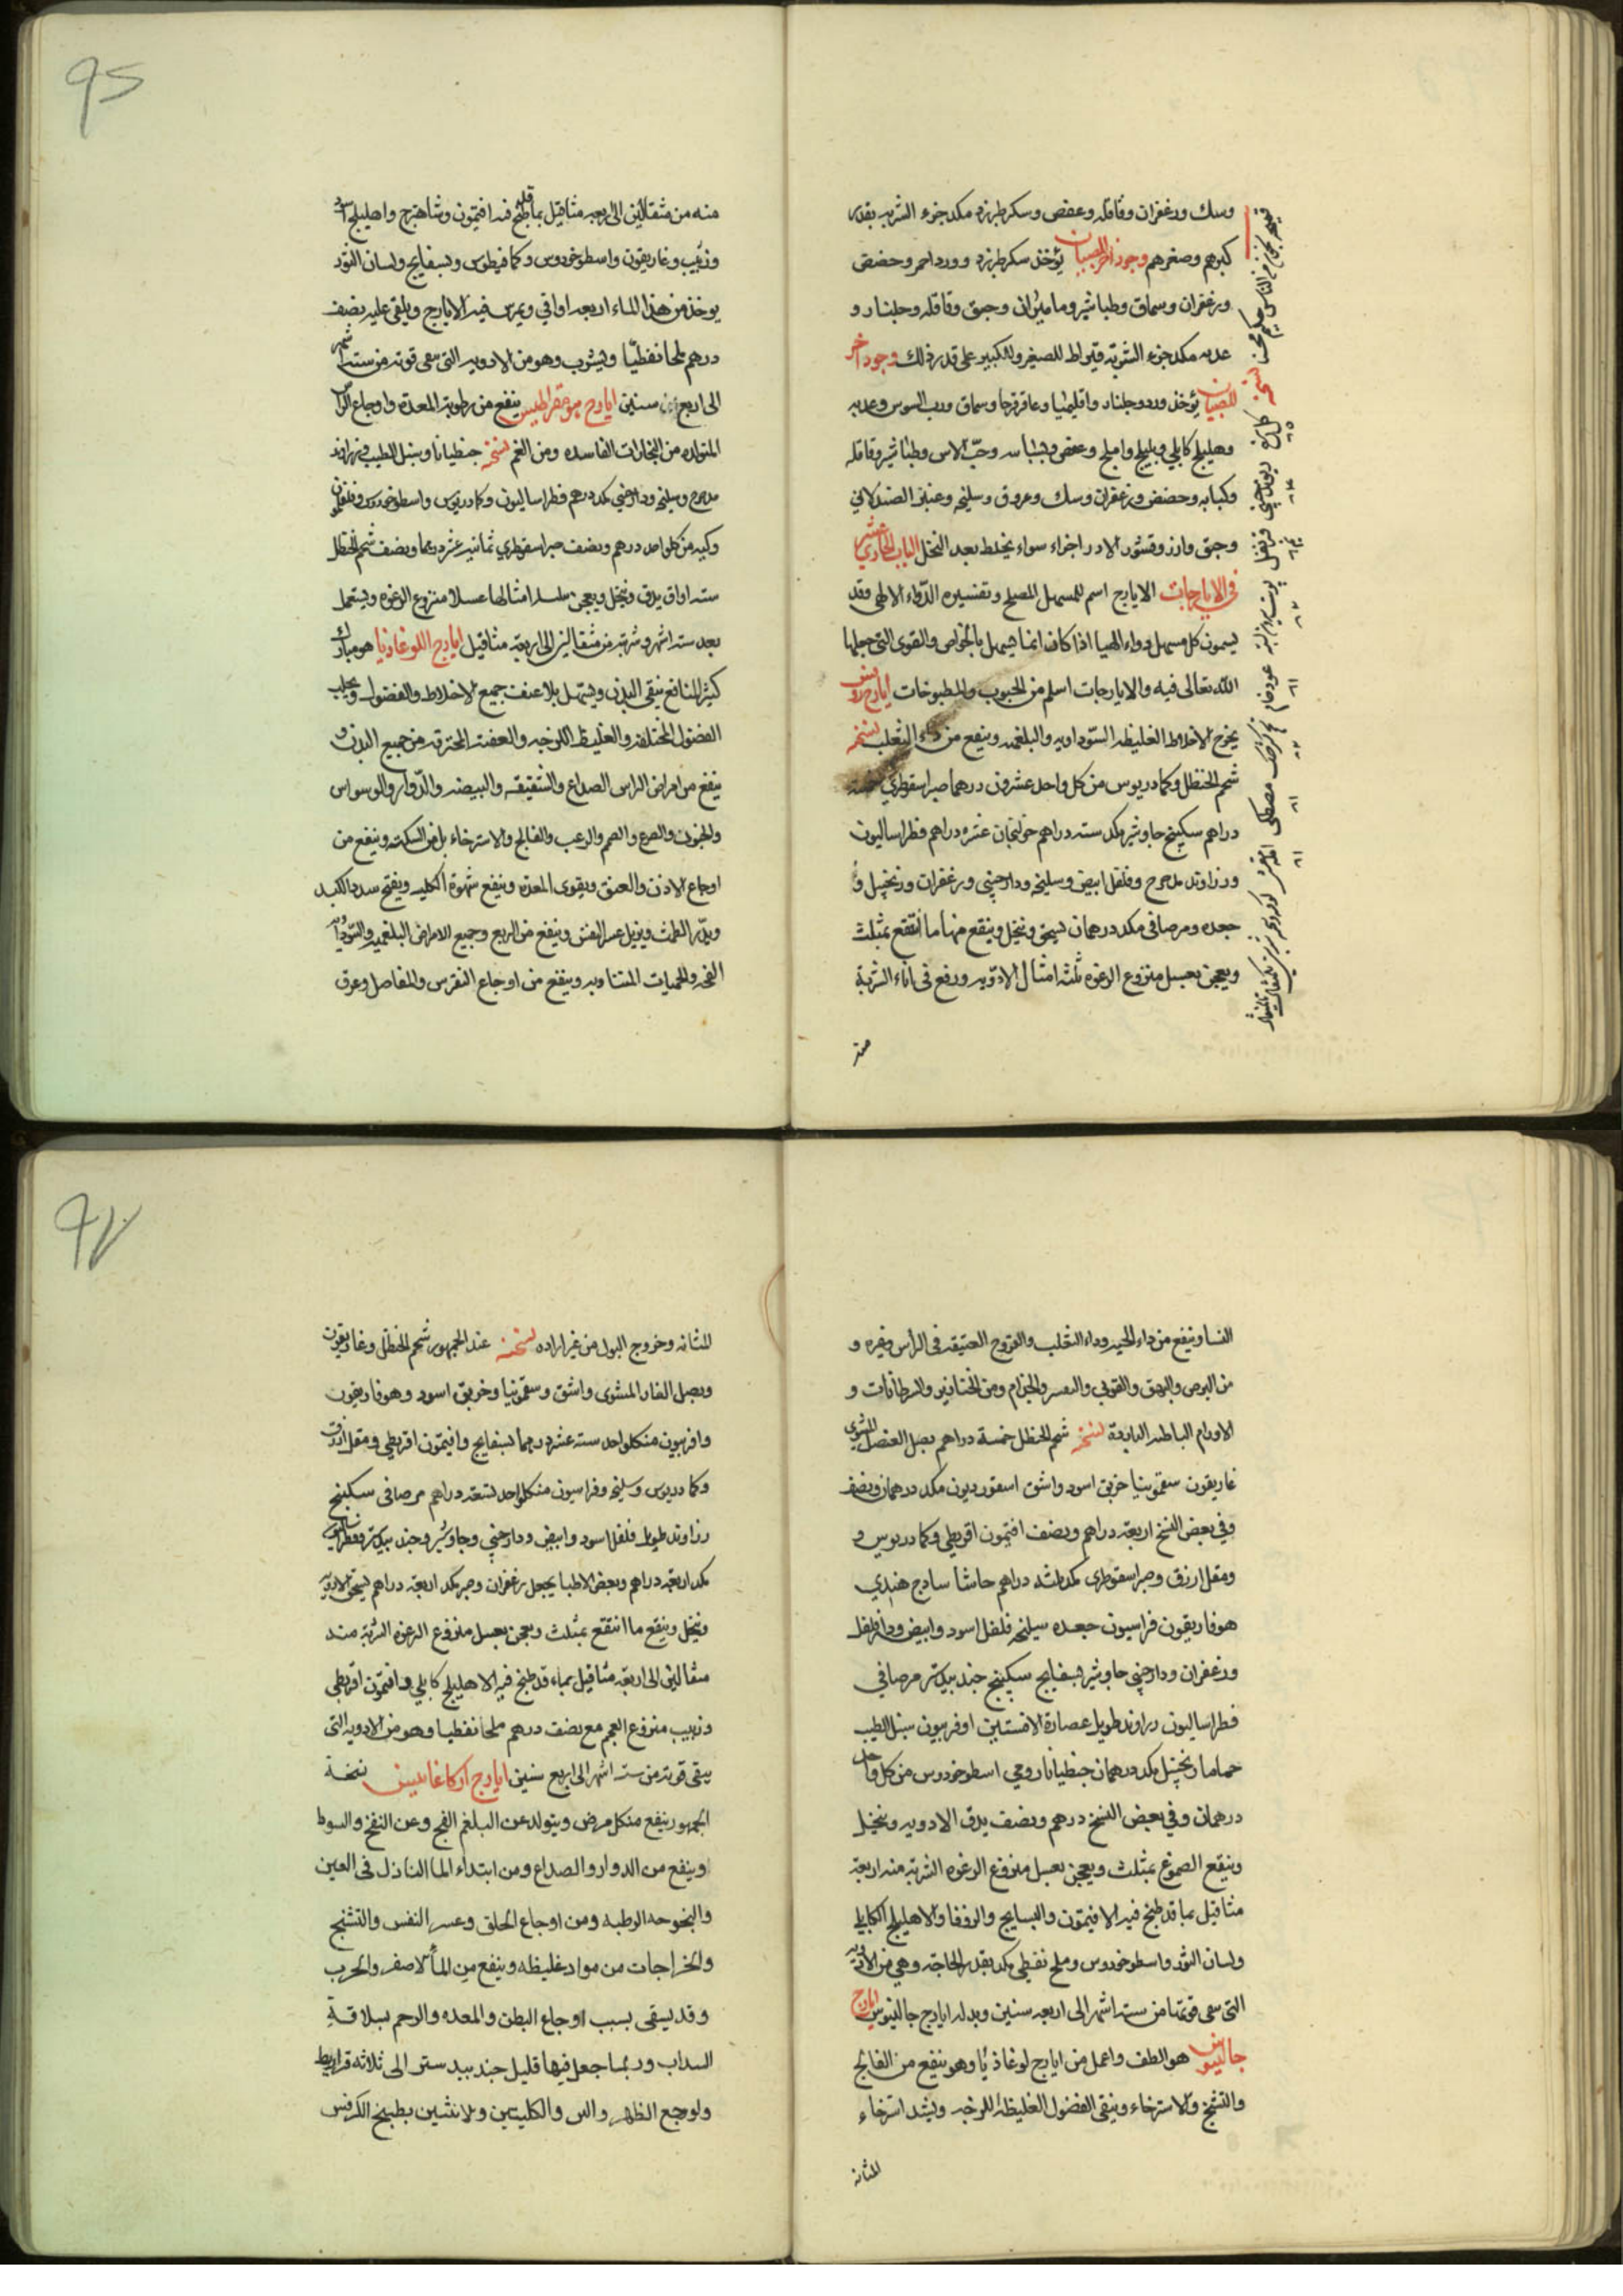 وسك وزعفران وقاقله وعفص وسكر طبرزد مكد جزء الشربه بقدر
كبرهم وصغرهم وجور اخر للصبيان يؤخذ سكر طبرزد وورد احمر وحضض
وزعفران وسماق وطباشير وماميران وجبق وقاقله وجلنار و
عدبه مكد جزء الشربه قيراط للصغير وللكبير على قدر ذلك وجور اخر
للصبيان يؤخذ ورد وجلنار واقليميا وعاقرقرحا وسماق ورب السوس وعدبه
وهليلج كابلي وبليلج واملج وعفص وبسباسه وحب الاس وطباشير وقاقله
وكبابه وحضض وزعفران وسك وعروق وسليخه وعنبر
وجبق وارز وقشور اجزاء سواء يخلط بعد النخل الباب الحادي عشر
في الايارجات الايارج اسم للمسهل المصلح وتفسيره الدواء الالهي وقد
يسمون كل مسهل دواء الهيا اذا كان انما يسهل بالخواص والقوى التي جعلها
الله تعالى فيه والايارجات اسلم من الحبوب والمطبوخات ايارج روفس
يخرج الاخلاط الغليظه السوداويه والبلغميه وينفع من داء الثعلب نسخته
شحم الحنظل وكمادريوس من كل واحد عشرون درهما صبر اسقوطري خمسة
دراهم سكبينج جاوشير مكد سته دراهم خولنجان عشره دراهم فطراساليون
وزراوند مدحرج وفلفل ابيض وسليخه ودارصيني وزعفران وزنجبيل و
جعده ومر صافي مكد درهمان يسحق وينخل وينقع منها ما انتقع بمثلث
ويعجن بعسل منزوع الرغوه ثلثه امثال الادويه ورفع في اناء الشربة
منه
نسخة
دارچيني
قرنفل
مصطكى
95
منه من مثقالين الى اربعه مثاقيل بما قد طبخ فيه افتيمون وشاهترج واهليلج اسود
وزبيب وغاريقون واسطوخودوس وكمافيطوس وبسفايج ولسان الثور
يوخذ من هذا الماء اربعه اواقي ويمرس فيه الايارج ويلقى عليه نصف
درهم ملحا نفطيا ويشرب وهو من الادويه التي تبقى قوته من سته اشهر
الى اربع سنين ايارج بوقراطيس ينفع من رطوبة المعدة واوجاع الراس
المتولده من البخارات الفاسده ومن الغم نسخته جنطيانا وسنبل الطيب وزراوند
مدحرج وسليخه ودارصيني مكد درهم فطراساليون وكمادريوس واسطوخودوس
من كل واحد درهم ونصف صبر اسقوطري ثمانيه عشر درهما ونصف شحم الحنظل
سته اواق يدق وينخل ويعجن بثلثه امثالها عسلا منزوع الرغوه ويستعمل
بعد سته اشهر وشربته من مثقالين الى اربعة مثاقيل ايارج اللوغاذيا هو مبارك
كثير المنافع ينقي البدن ويسهل بلا عنف جميع الاخلاط والفضول ويجلب
الفضول المختلفه والغليظه اللزجه والعفنه المحترقه من جميع البدن و
ينفع من امراض الراس الصداع والشقيقه والبيضه والدوار والوسواس
والجنون والصرع والصمم والرعب والفالج والاسترخاء بل من السكته وينفع من
اوجاع الاذن والعنق ويقوى المعده وينفع شهوة الكلبيه ويفتح سدد الكبد
ويدر الطمث ويزيل عسر النفس وينفع من الربع وجميع الامراض البلغميه والسوداويه
الفجه والحميات المتناوبه وينفع من اوجاع النقرس والمفاصل وعرق
النسا وينفع من داء الحيه وداء الثعلب والقروح العتيقه في الراس وغيره و
من البرص والبهق والقوبي والجذام ومن الخنازير والسرطانات و
الاورام الباطنه الباردة نسخته شحم الحنظل خمسة دراهم بصل العنصل المشوي
غاريقون سقمونيا خربق اسود واشق اسقورديون مكد درهمان ونصف
وفي بعض النسخ اربعة دراهم ونصف افتيمون اقريطي وكمادريوس و
ومقل ازرق وصبر اسقوطري مكد ثلثه دراهم حاشا سادج هندي
هوفاريقون فراسيون جعده سليخه فلفل اسود وابيض ودارفلفل
وزعفران ودارصيني جاوشير بسفايج سكبينج جندبيدستر مر صافي
فطراساليون زراوند طويل عصارة الافسنتين اوفربيون سنبل الطيب
حماما زنجبيل مكد درهمان جنطيانا رومي اسطوخودوس من كل واحد
درهمان وفي بعض النسخ درهم ونصف يدق الادويه وينخل
وينقع الصموغ بمثلث ويعجن بعسل منزوع الرغوه الشربة منه اربعة
مثاقيل بما قد طبخ فيه الافتيمون والبسفايج والزوفا والاهليلج الكابلي
ولسان الثور واسطوخودوس وملح نفطي مكد بقدر الحاجة وهي من الادويه
التي تبقى قوتها من سته اشهر الى اربعه سنين وبدله ايارج جالينوس ايارج
جالينوس هو الطف واعمل من ايارج لوغاذيا وهو ينفع من الفالج
والتشنج والاسترخاء وينقي الفضول الغليظه اللزجه ويشد استرخاء
المثانه
للمثانه وخروج البول من غير اراده نسخته عند الجمهور شحم الحنظل وغاريقون
وبصل الفار المشوى واشق وسقمونيا وخربق اسود وهوفاريقون
وافربيون من كل واحد سته عشر درهما بسفايج وافتيمون اقريطي ومقل ازرق
وكمادريوس وسليخه وفراسيون من كل واحد تسعة دراهم مر صافي سكبينج
زراوند طويل فلفل اسود وابيض ودارصيني وجاوشير وجندبيدستر وفطراساليون
مكد اربعة دراهم وبعض الاطبا يجعل زعفران وصبر مكد اربعة دراهم يسحق الادويه
وينخل وينقع ما انتقع بمثلث ويعجن بعسل منزوع الرغوه الشربة منه
مثقالين الى اربعة مثاقيل بماء قد طبخ فيه الاهليلج كابلي وافتيمون اقريطي
وزبيب منزوع العجم مع نصف درهم ملحا نفطيا وهو من الادويه التي
يبقى قوته من سته اشهر الى اربع سنين ايارج اركاغانيس نسخة
الجمهور ينفع من كل مرض ويتولد عن البلغم الفج وعن النفخ والسوط
وينفع من الدوار والصداع ومن ابتداء الما النازل في العين
والبحوحه الرطبه ومن اوجاع الحلق وعسر النفس والتشنج
والخراجات من مواد غليظه وينفع من الما الاصفر والجرب
وقد يسقى بسبب اوجاع البطن والمعده والرحم بسلاقة
السداب وربما جعل فيها قليل جندبيدستر الى ثلاثه قراريط
ولوجع الظهر والكليتين والانثيين بطبيخ الكرفس